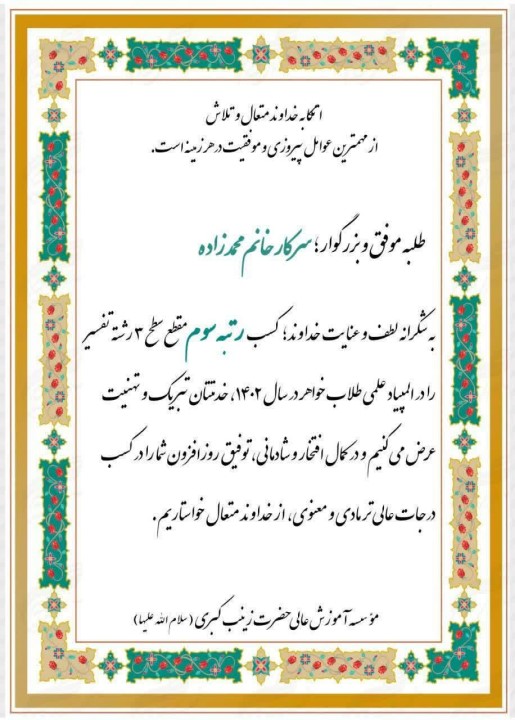 اتکا به خداوند متعال و تلاش
از مهمترین عوامل پیروزی و موفقیت در هر زمینه است.
طلبه موفق و بزرگوار؛ سرکار خانم محمدزاده
به شکرانه لطف و عنایت خداوند؛ کسب رتبه سوم مقطع سطح ۳ رشته تفسیر
را در المپیاد علمی طلاب خواهر در سال ۱۴۰۲، خدمتتان تبریک و تهنیت
عرض می کنیم و در کمال افتخار و شادمانی، توفیق روز افزون شما را در کسب
درجات عالی تر مادی و معنوی، از خداوند متعال خواستاریم.
مؤسسه آموزش عالی حضرت زینب کبری (سلام الله علیها)